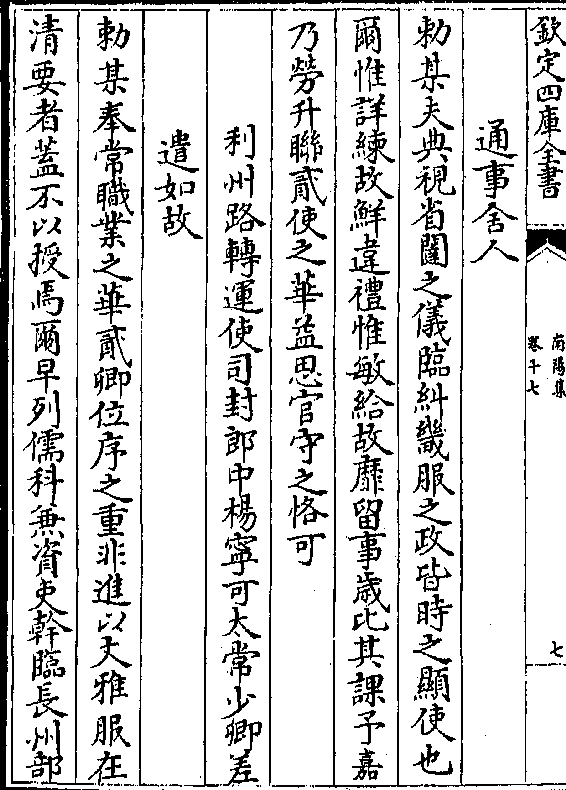 欽定四庫全書
南陽集
卷十七
七
通事舍人
勅某夫典視省闥之儀臨糾畿服之政皆時之顯使也
爾惟詳練故鮮違禮惟敏給故靡留事歲比其課予嘉
乃勞升聯貳使之華益思官守之恪可
利州路轉運使司封郎中楊寧可太常少卿差
遣如故
勅某奉常職業之華貳卿位序之重非進以文雅服在
清要者蓋不以授焉爾早列儒科兼資吏幹臨長州部